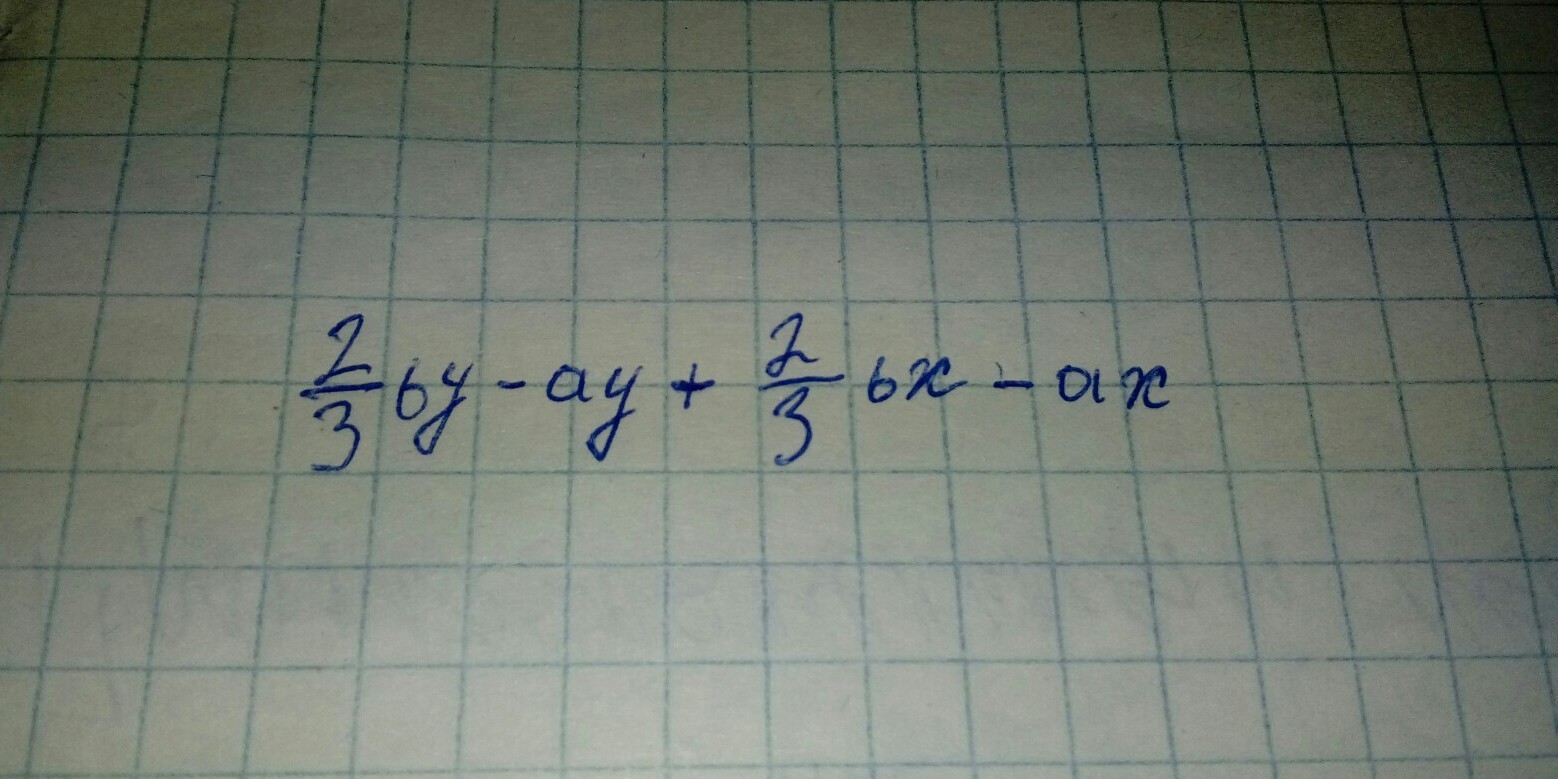 2/3 by - ay + 2/3 bx - ax